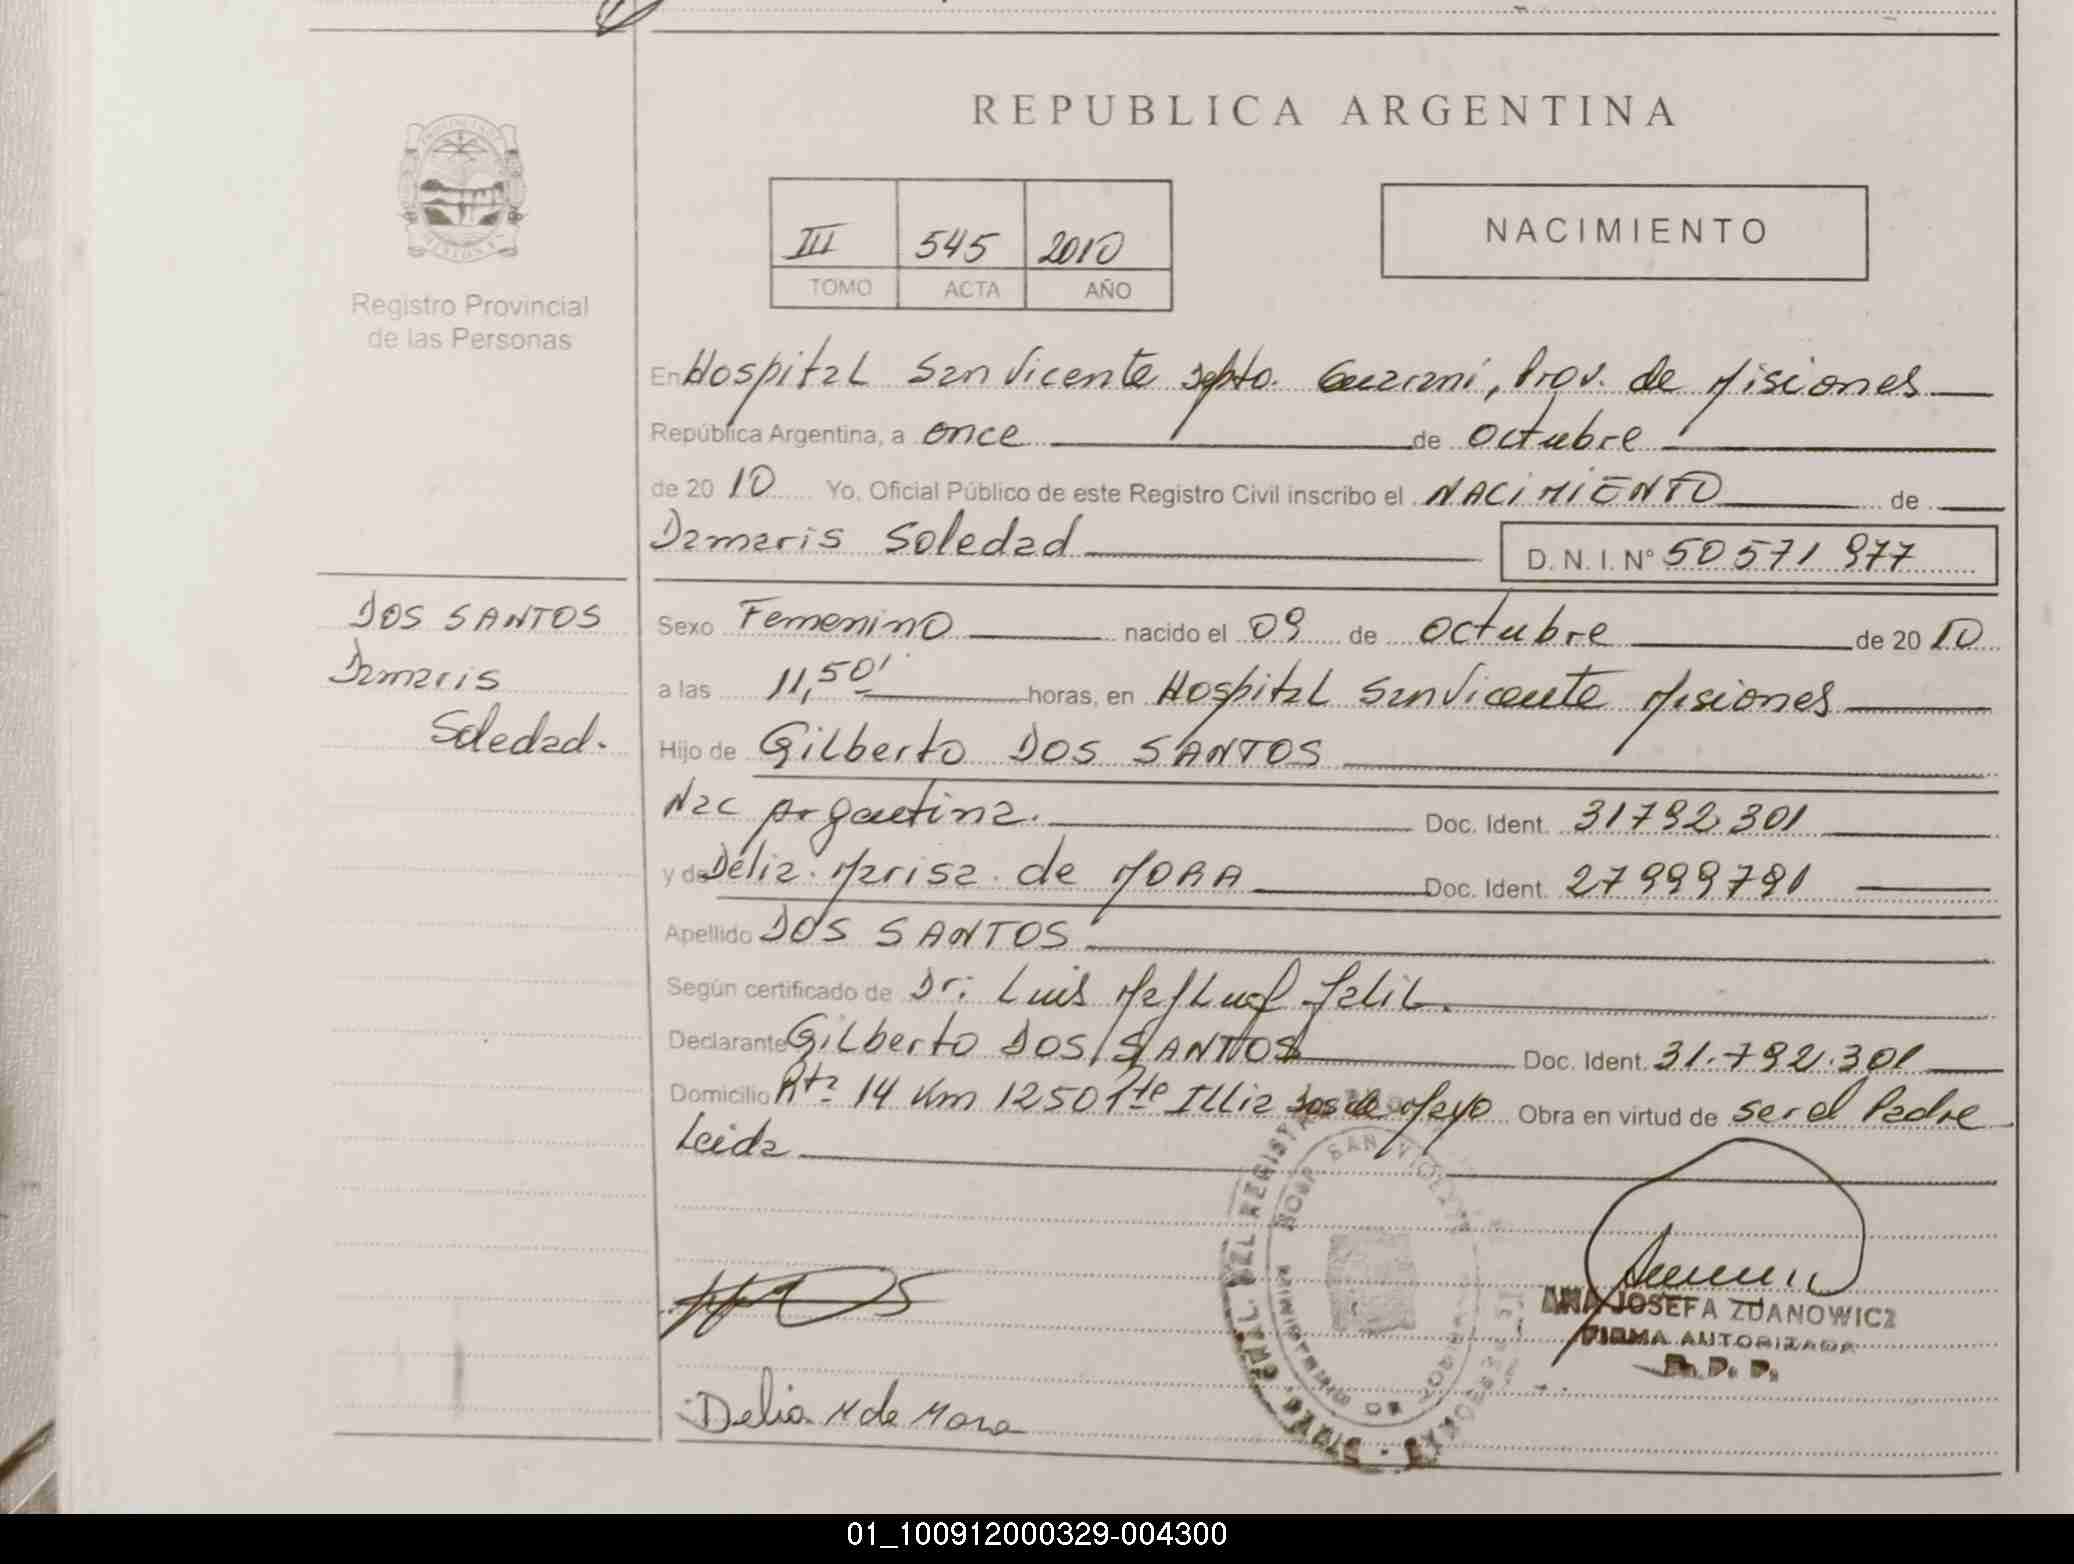 REPUBLICA ARGENTINA
III 545 2010
TOMO ACTA AÑO
NACIMIENTO
Registro Provincial
de las Personas
En Hospital San Vicente Dpto. Guarani, Prov. de Misiones
República Argentina, a once de octubre
de 2010 Yo, Oficial Público de este Registro Civil inscribo el NACIMIENTO de
Damaris Soledad D. N. I. N° 50571977
DOS SANTOS
Damaris
Soledad.
Sexo Femenino nacido el 09 de octubre de 2010
a las 11,50' horas, en Hospital San Vicente Misiones
Hijo de Gilberto DOS SANTOS
Nac Argentina. Doc. Ident. 31792301
y de Delia Marisa de MORA Doc. Ident. 27999791
Apellido DOS SANTOS
Según certificado de Dr. Luis Jalil.
Declarante Gilberto DOS SANTOS Doc. Ident. 31.792.301
Domicilio Rta 14 Km 1250 Pte Illia Dos de Mayo Obra en virtud de ser el Padre
Leida
HOSP SAN VICENTE
ANA JOSEFA ZDANOWICZ
FIRMA AUTORIZADA
R. P. P.
Delia M de Mora
01_100912000329-004300